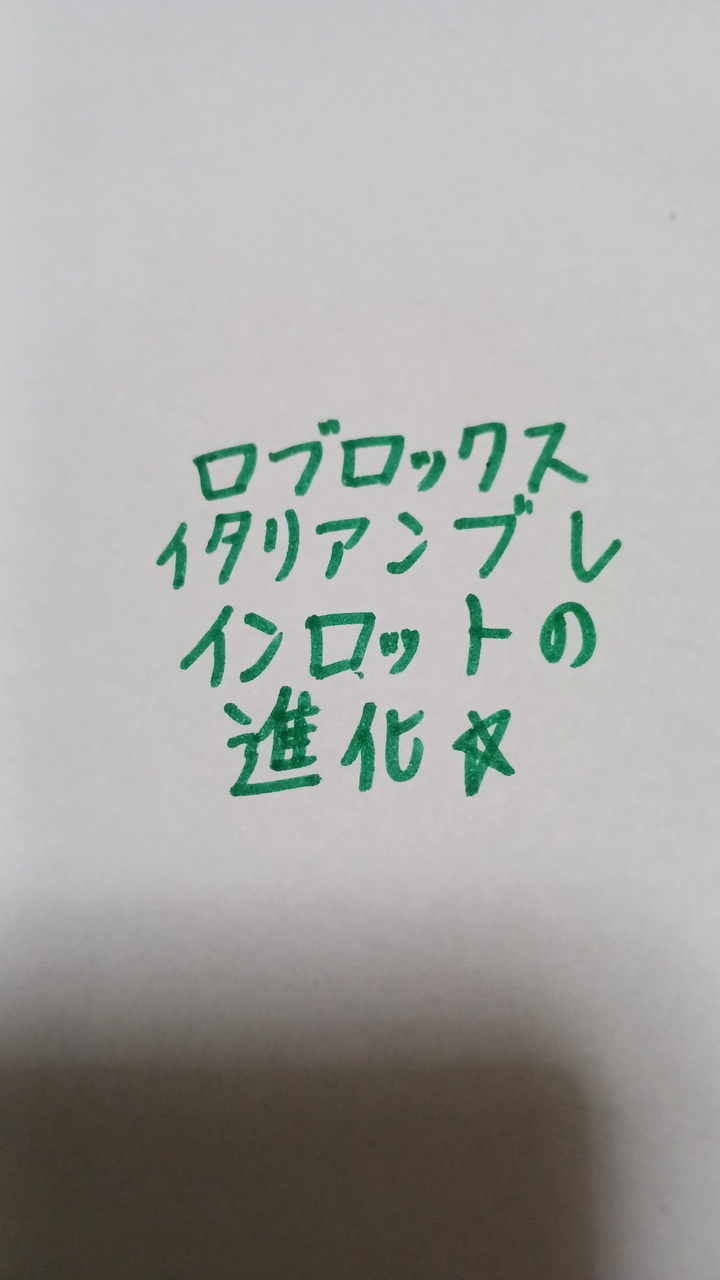 ロブロックス
イタリアンブレ
インロットの
進化☆